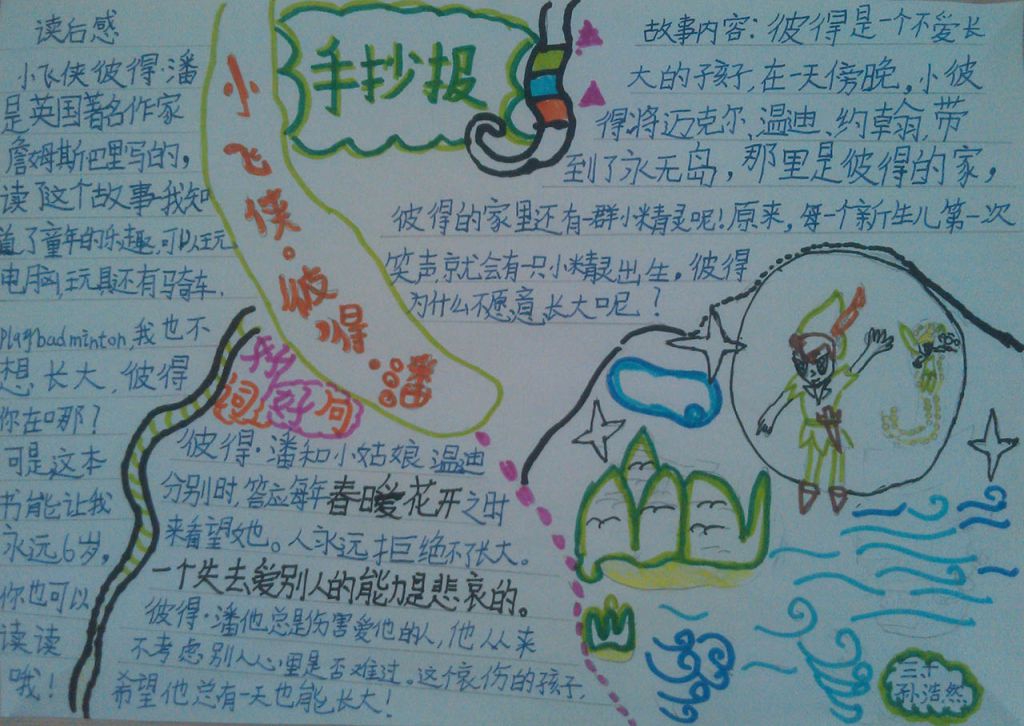 手抄报
小飞侠·彼得·潘
读后感
小飞侠彼得·潘
是英国著名作家
詹姆斯巴里写的，
读了这个故事我知
道了童年的乐趣，可以玩
电脑网，玩具还有马奇车，
play badminton，我也不
想长大，彼得
你在哪？
可是这本
书能让我
永远6岁，
你也可以
读读
哦！
故事内容：彼得是一个不爱长
大的孩子，在一天傍晚，小彼
得将迈克尔、温迪、约翰，带
到了永无岛，那里是彼得的家，
彼得的家里还有一群小精灵呢！原来，每一个新生儿第一次
笑声，就会有一只小精灵出生。彼得
为什么不愿意长大呢？
好词好句
彼得·潘和小姑娘温迪
分别时，答应每年春日爱花开之时
来看望她。人永远拒绝不了长大。
一个失去爱别人的能力是悲哀的。
彼得·潘他总是伤害爱他的人，他从来
不考虑别人心里是否难过。这个哀伤的孩子，
希望他总有一天也能长大！
三、千
孙浩然